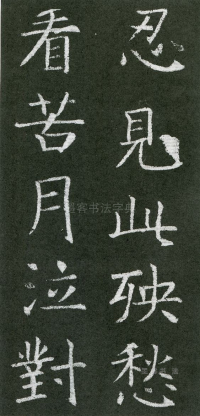 忍見此殃愁
看苦月泣對